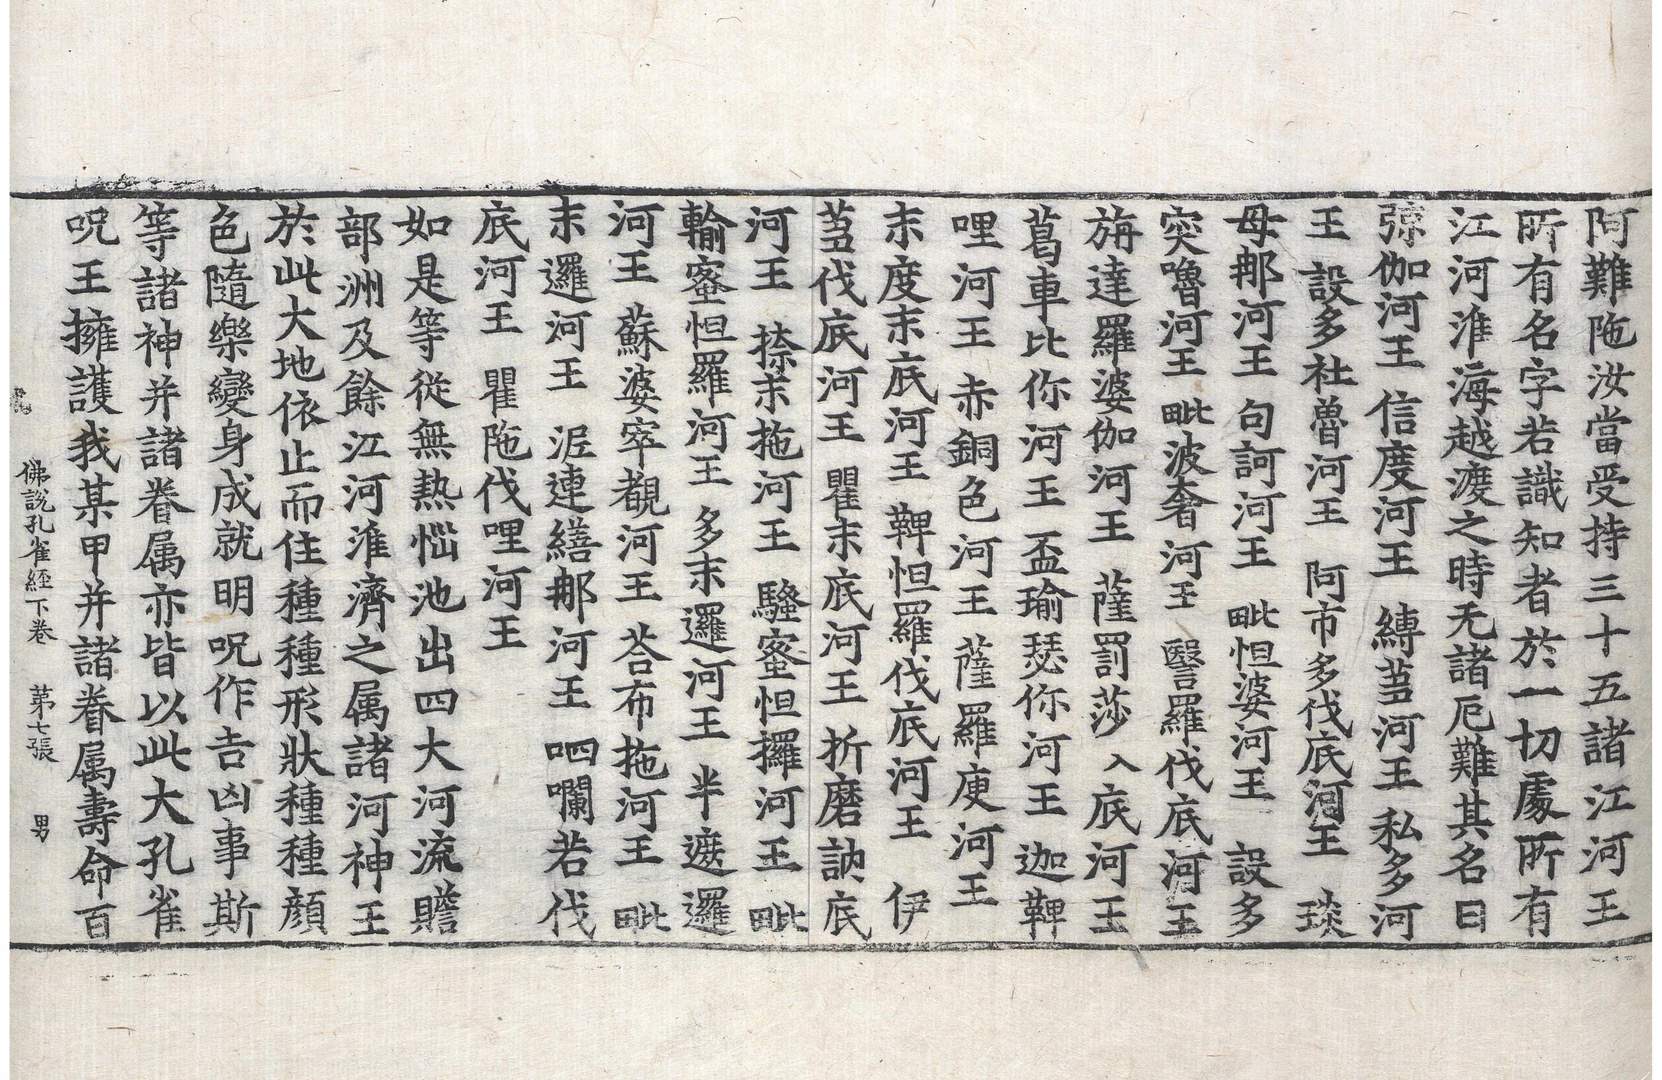 阿難陁汝當受持三十五諸江河王
所有名字若識知者於一切處所有
江河淮海越渡之時无諸厄難其名曰
弶伽河王 信度河王 縛蒭河王 私多河
王 設多社魯河王 阿市多伐底河王 琰
母那河王 句訶河王 毗怛婆河王 設多
突嚕河王 毗波奢河王 瑿羅伐底河王
旃達羅婆伽河王 薩罰莎入底河王
葛車比你河王 盃瑜瑟你河王 迦鞞
哩河王 赤銅色河王 薩羅庾河王
末度末底河王 鞞怛羅伐底河王 伊
蒭伐底河王 瞿末底河王 折磨訥底
河王 捺末拖河王 騷蜜怛攞河王 毗
輸蜜怛羅河王 多末邏河王 半遮邏
河王 蘇婆窣覩河王 荅布拖河王 毗
末邏河王 泥連繕那河王 呬爛若伐
底河王 瞿陁伐哩河王
如是等從無熱惱池出四大河流贍
部洲及餘江河淮濟之属諸河神王
於此大地依止而住種種形狀種種顔
色隨樂變身成就明呪作吉凶事斯
等諸神并諸眷属亦皆以此大孔雀
呪王擁護我某甲并諸眷属壽命百
佛說孔雀経下卷 第七張 男